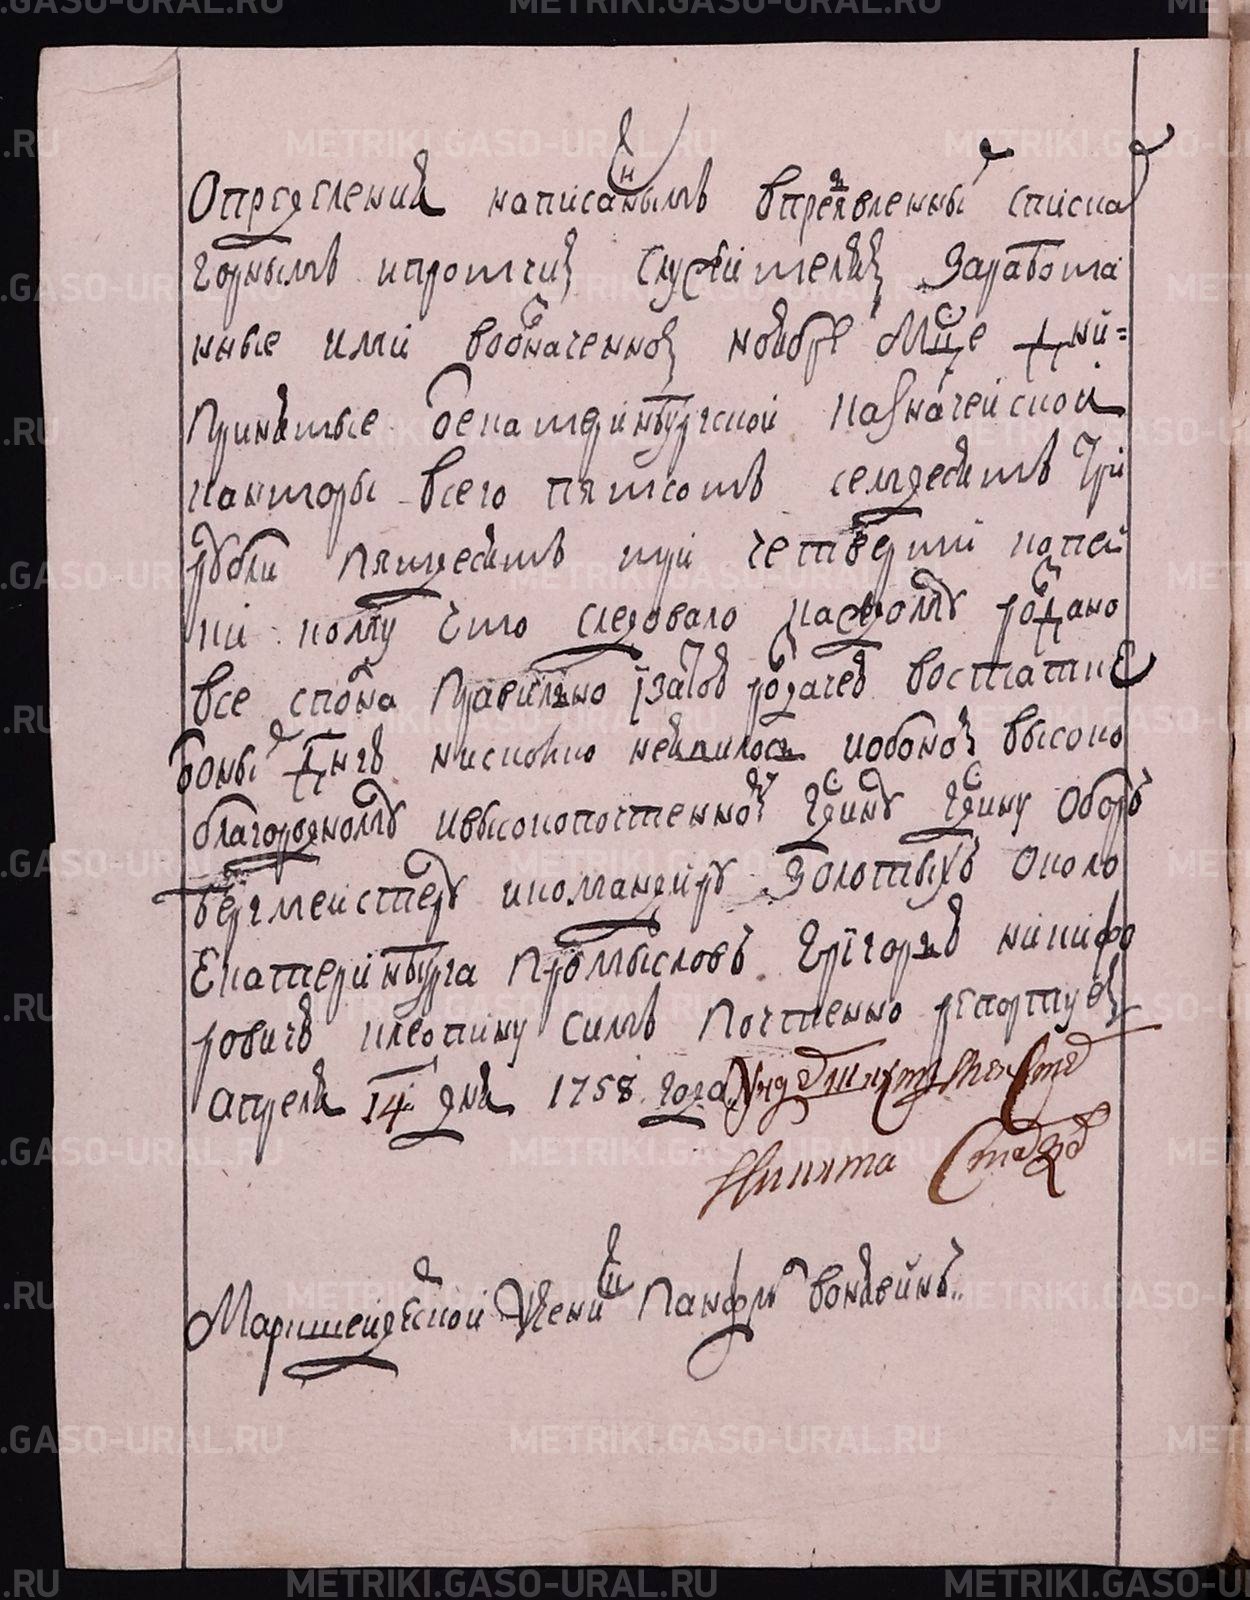 Определения написаннымъ впреявленны списка
горнымъ и протчи служителям заработа
нные ими вообначенной ноябре мце днги
принятые Секатеринбургской казначейской
канторы всего пятсотъ семдесятъ три
рубли пятдесятъ три четверти копей
ки кому что следовало на сколку роздано
все сполна правилно и затой роздачей востатке
оны днгъ нисколко неявилось и обоной высоко
благородному и высокопочтенному гдину гдину Оберъ
бергмейстеру и командиру золотыхъ около
Екатеринбурга промысловъ Григорью никифо
ровичю клеопину симъ почтенно репортую
апреля 14 дня 1758 года
Никита
Маркшейдерской ученикъ Панфилъ вонявинъ
METRIKI.GASO-URAL.RU